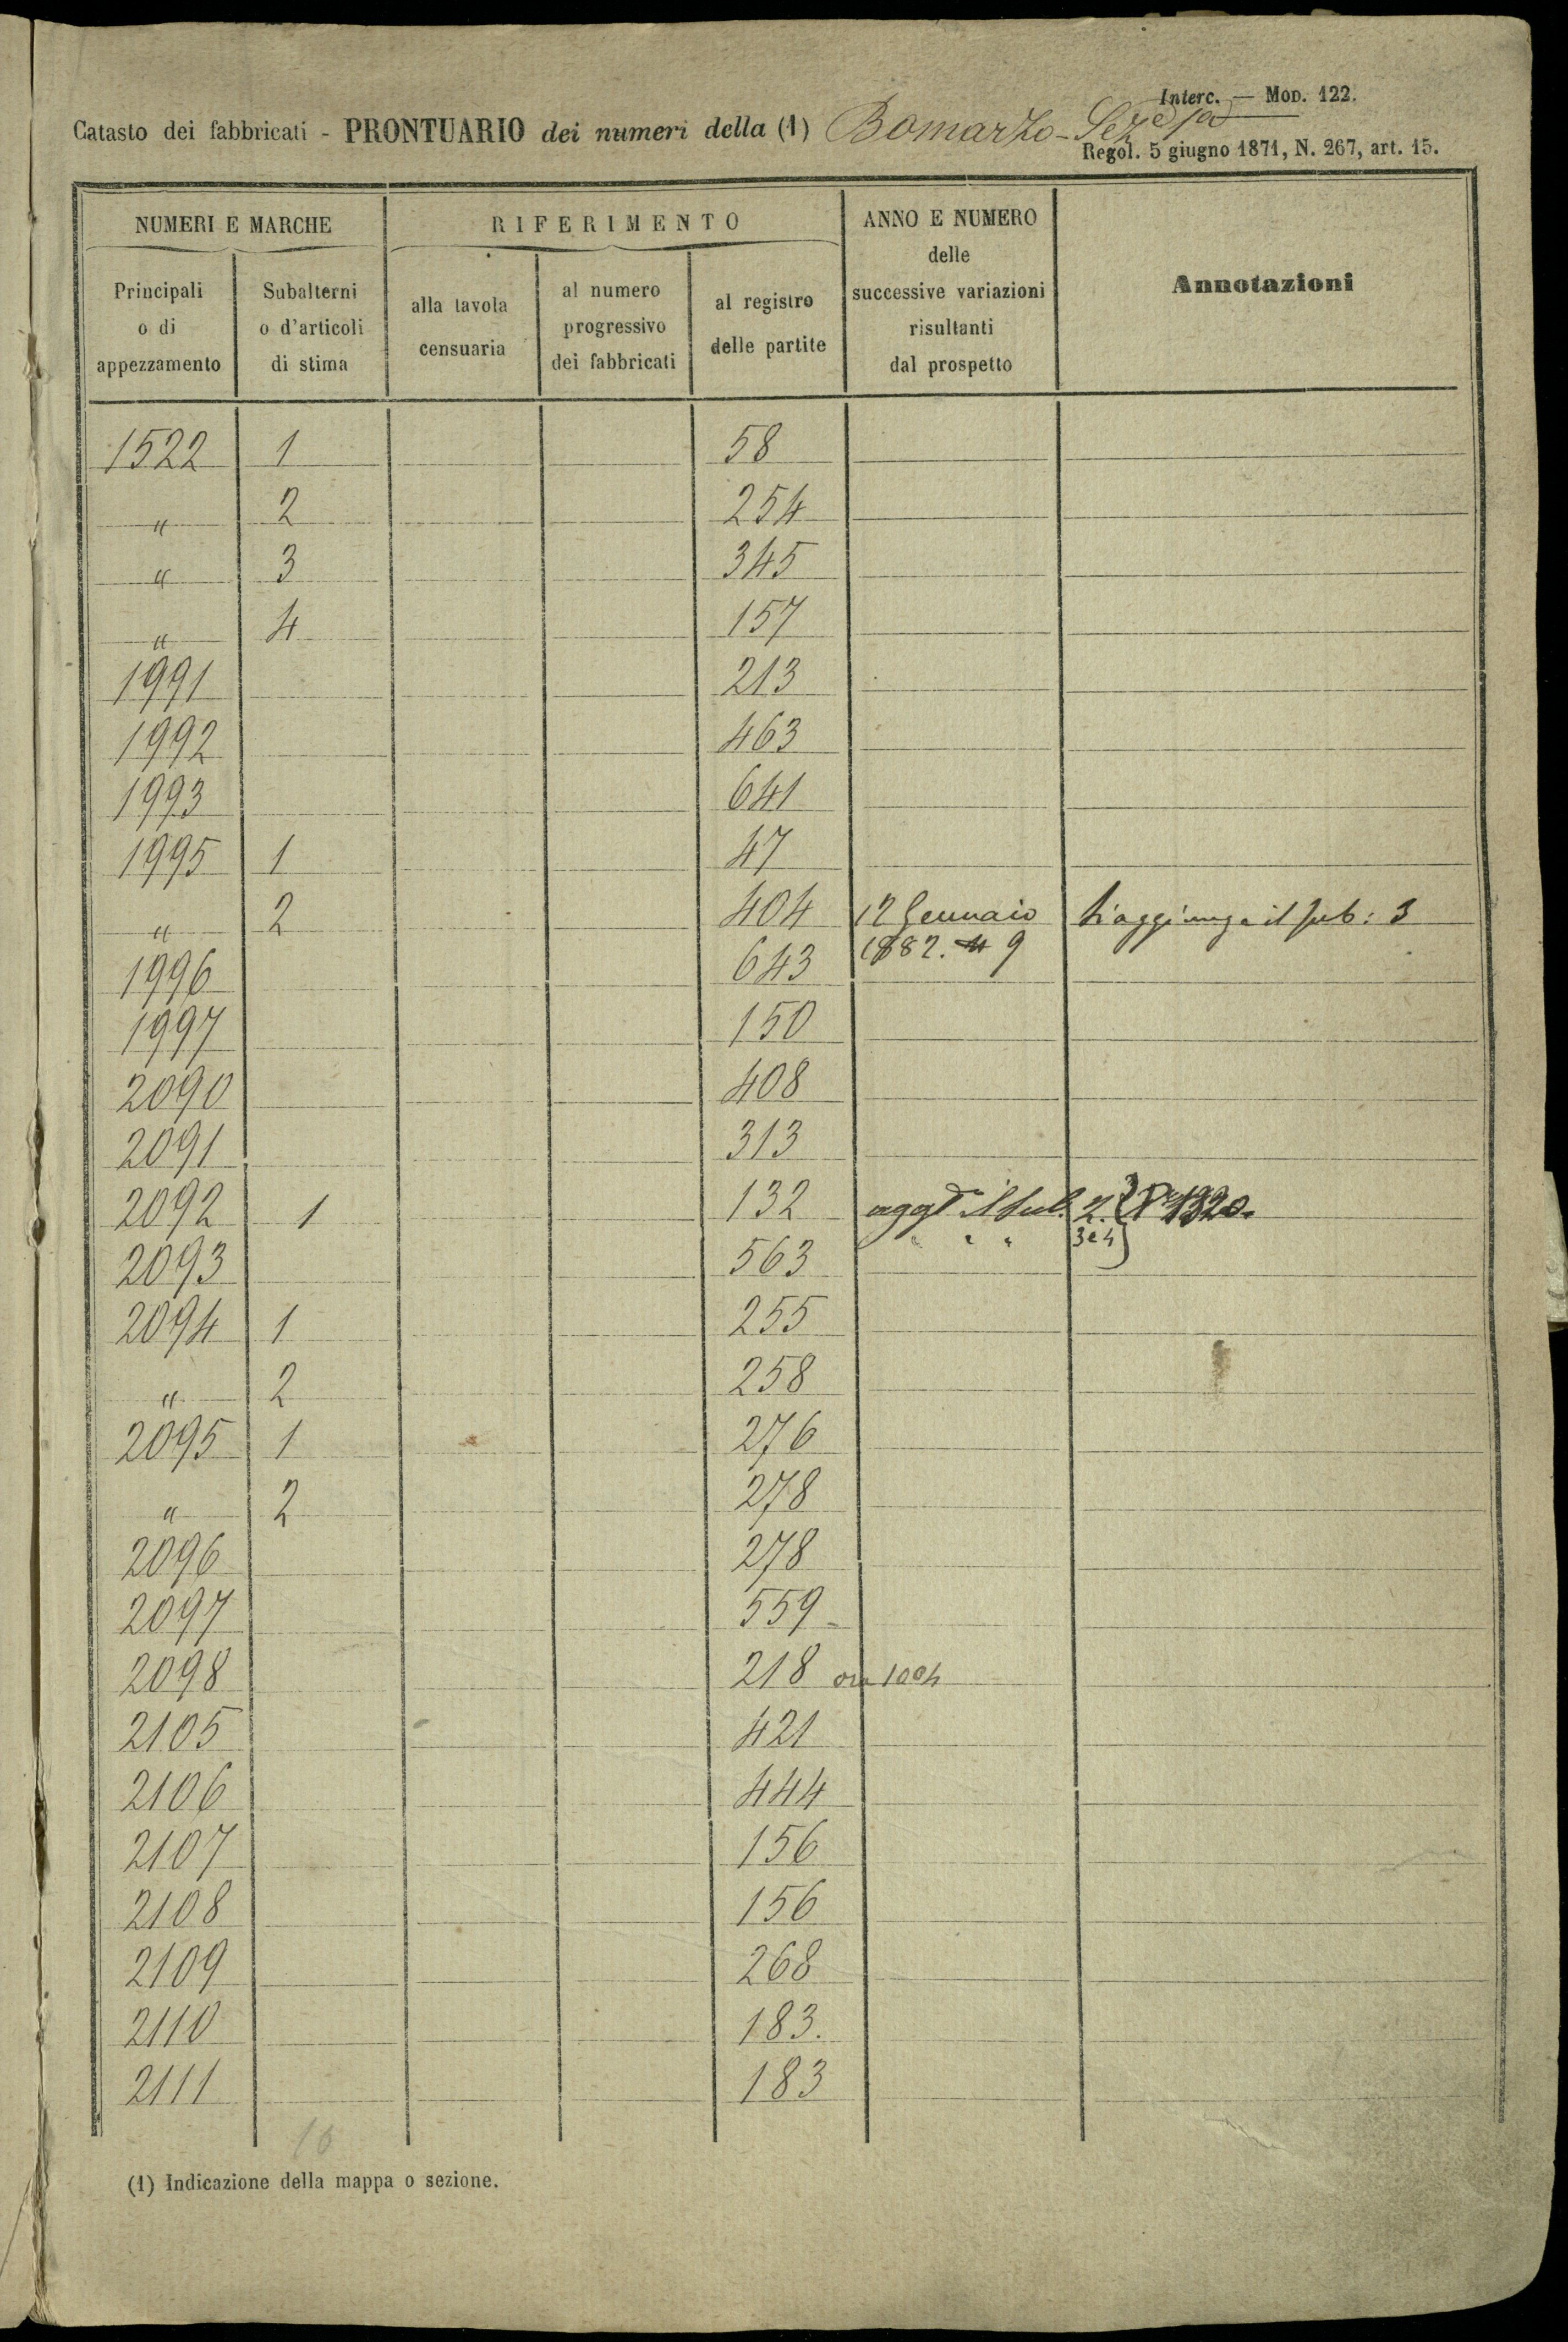 Interc. — Mod. 122.
Catasto dei fabbricati - PRONTUARIO dei numeri della (1) Bomarzo - Sez.e 1a
Regol. 5 giugno 1871, N. 267, art. 15.
NUMERI E MARCHE
RIFERIMENTO
ANNO E NUMERO
delle
successive variazioni
risultanti
dal prospetto
Annotazioni
Principali
o di
appezzamento
Subalterni
o d'articoli
di stima
alla tavola
censuaria
al numero
progressivo
dei fabbricati
al registro
delle partite
1522 1 58
" 2 254
" 3 345
" 4 157
1991 213
1992 463
1993 641
1995 1 47
" 2 404 12 Gennaio Si aggiunga il sub: 3
1882. 9
1996 643
1997 150
2090 408
2091 313
2092 1 132 il sub. 2. 1920.
" " " 3 e 4
2093 563
2094 1 255
" 2 258
2095 1 276
" 2 278
2096 278
2097 559
2098 218 ora 1004
2105 421
2106 444
2107 156
2108 156
2109 268
2110 183.
2111 183
16
(1) Indicazione della mappa o sezione.